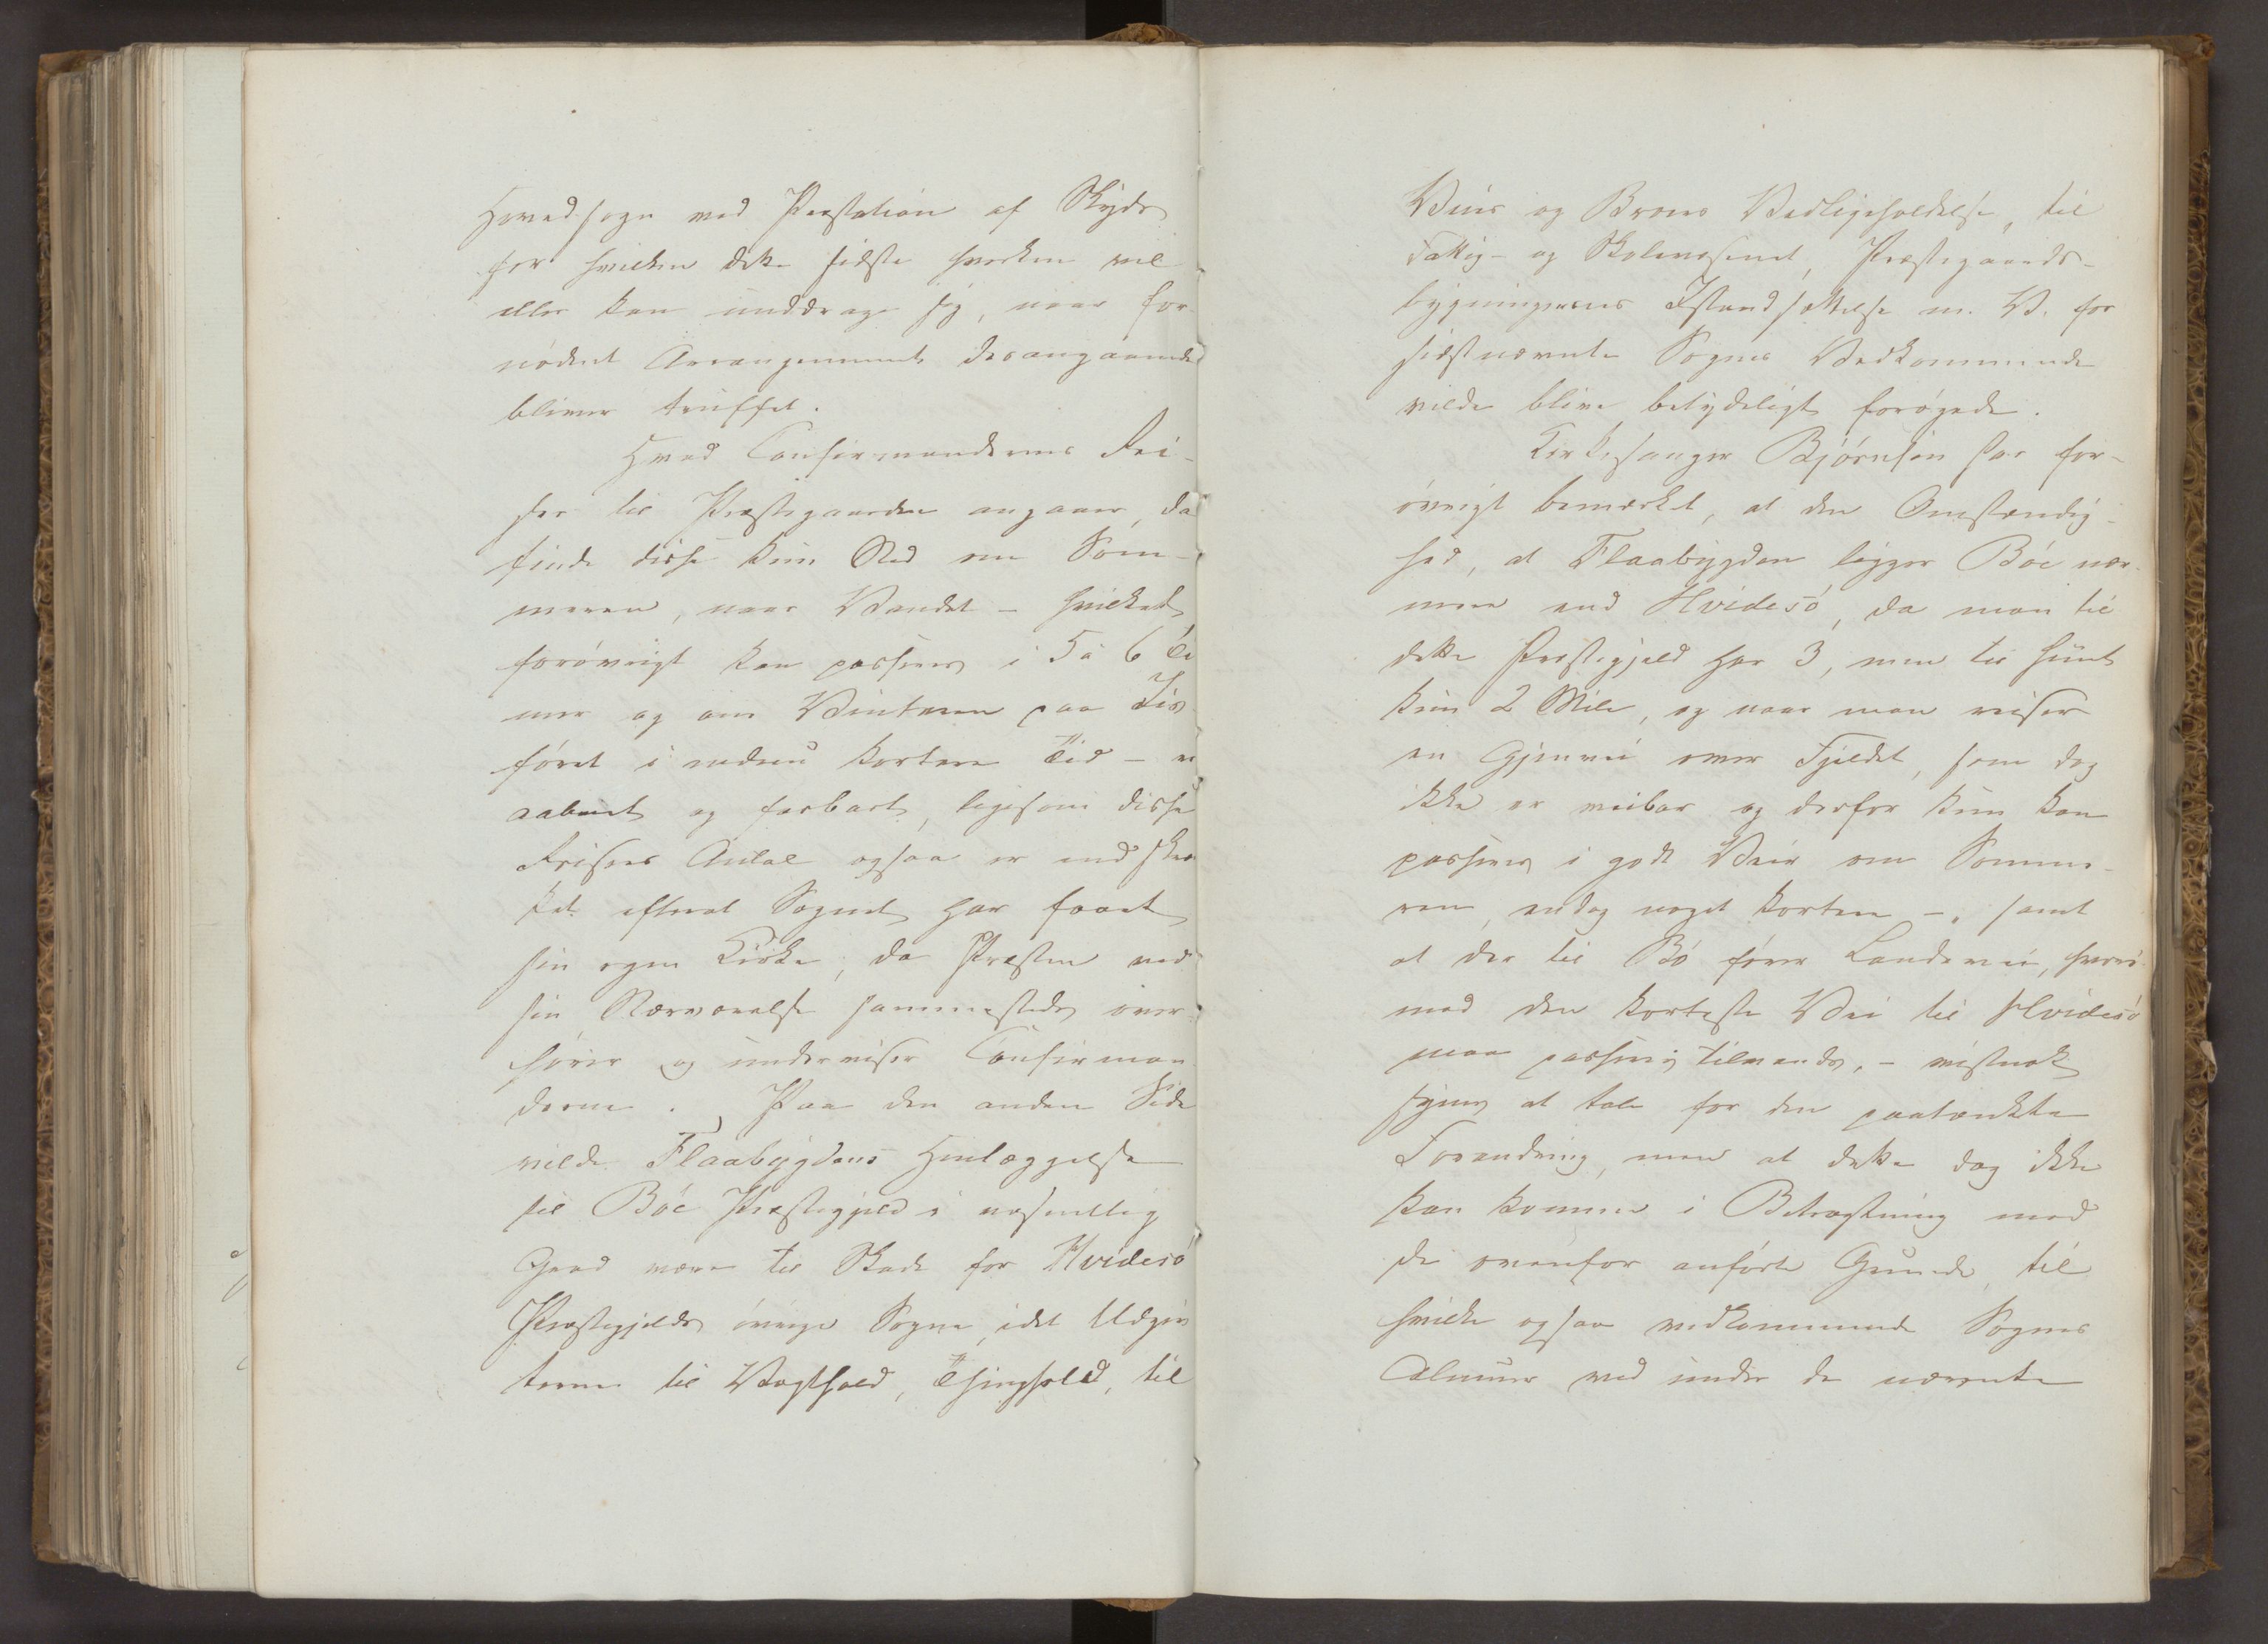 Hovedsogn med Præstation af Skyds
for hvilken dette sidste hverken vil
eller kan unddrage sig, naar for-
nødent Arrangement desangaaende
bliver truffet.
Hvad Confirmandernes Rei-
ser til Præstegaarden angaaer, da
finde disse kun Sted om Som-
meren, naar Vandet - hvilket
forøvrigt kan passeres i 5 á 6 Ti-
mer og om Vinteren paa Iis-
føret i endnu kortere Tid - er
aabent og farbart, ligesom disse
Reisers Antal ogsaa er indskræn-
ket efterat Sognet har faaet
sin egen Kirke, da Præsten ved
sin Nærværelse sammesteds over-
hører og underviser Confirman-
derne. Paa den anden Side
vilde Flaabygdens Henlæggelse
til Bøe Præstegjeld i væsentlig
Grad være til Skade for Hvidesø
Præstegjelds øvrige Sogne, idet Udgif-
terne til Vægthold, Thinghold, til
Veies og Broes Vedligeholdelse, til
Fattig- og Skolevæsenet, Præstegaards-
bygningernes Istandsættelse m. V. for
sidstnævnte Sognes Vedkommende
vilde blive betydeligt forøgede.
Kirkesanger Bjørnsen har for-
øvrigt bemærket, at den Omstændig-
hed, at Flaabygden ligger Bøe nær-
mere end Hvidesø, da man til
dette Præstegjeld har 3, men til hiint
kun 2 Mile, og naar man reiser
en Gjenvei over Fjeldet, som dog
ikke er veibar og derfor kun kan
passeres i godt Veir om Somme-
ren, endog noget kortere -, samt
at der til Bø fører Landevei, hvori-
mod den korteste Vei til Hvidesø
maa passeres tilvands, - vistnok
synes at tale for den paatænkte
Forandring, men at dette dog ikke
kan komme i Betragtning mod
de ovenfor anførte Grunde, til
hvilke ogsaa vedkommende Sognes
Almuer ved under de nævnte